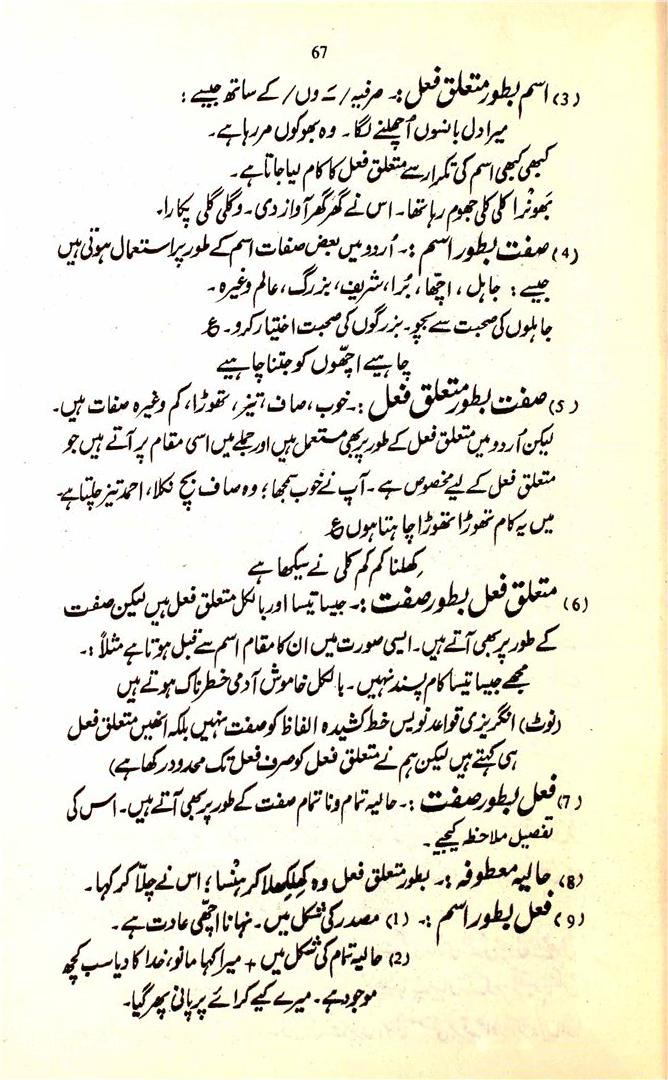 67
(3) اسم بطور متعلق فعل :۔ صرفیہ / ے وں / کے ساتھ جیسے :
میرا دل بانسوں اُچھلنے لگا۔ وہ بھوکوں مر رہا ہے۔
کبھی کبھی اسم کی تکرار سے متعلق فعل کا کام لیا جاتا ہے۔
بھَونْرا کلی کلی جھوم رہا تھا۔ اس نے گھر گھر آواز دی۔ وگلی گلی پکارا۔
(4) صفت بطور اسم :۔ اُردو میں بعض صفات اسم کے طور پر استعمال ہوتی ہیں
جیسے : جاہل ، اچھّا ، بُرا، شریف، بزرگ، عالم وغیرہ۔
جاہلوں کی صحبت سے بچو۔ بزرگوں کی صحبت اختیار کرو۔ ع
چاہیے اچھّوں کو جتنا چاہیے
(5) صفت بطور متعلق فعل :۔ خوب، صاف، تیز، تھوڑا، کم وغیرہ صفات ہیں۔
لیکن اُردو میں متعلق فعل کے طور پر بھی مستعمل ہیں اور جملے میں اسی مقام پر آتے ہیں جو
متعلق فعل کے لیے مخصوص ہے۔ آپ نے خُوب سمجھا ؛ وہ صاف بچ نکلا، احمد تیز چلتا ہے۔
میں یہ کام تھوڑا تھوڑا چاہتا ہوں ع
کِھلنا کم کم کلی نے سیکھا ہے
(6) متعلق فعل بطور صفت :۔ جیسا تیسا اور بالکل متعلق فعل ہیں لیکن صفت
کے طور پر بھی آتے ہیں۔ ایسی صورت میں ان کا مقام اسم سے قبل ہوتا ہے مثلاً :۔
مجھے جیسا تیسا کام پسند نہیں۔ بالکل خاموش آدمی خطرناک ہوتے ہیں
(نوٹ) انگریزی قواعد نویس خط کشیدہ الفاظ کو صفت نہیں بلکہ انھیں متعلق فعل
ہی کہتے ہیں لیکن ہم نے متعلق فعل کو صرف فعل تک محدود رکھا ہے)
(7) فعل بطور صفت :۔ حالیہ تمام و نا تمام صفت کے طور پر بھی آتے ہیں۔ اس کی
تفصیل ملاحظہ کیجیے۔
(8) حالیہ معطوفہ :۔ بطور متعلق فعل وہ کھِلکھلا کر ہنْسا ؛ اس نے چلّا کر کہا۔
(9) فعل بطور اسم :۔ (1) مصدر کی شکل میں۔ نہانا اچھّی عادت ہے۔
(2) حالیہ تمام کی شکل میں + میرا کہا مانو، خدا کا دیا سب کچھ
موجود ہے۔ میرے کیے کرائے پر پانی پھر گیا۔